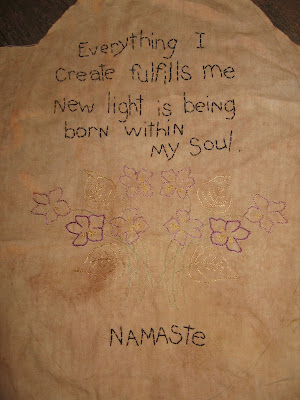 Everything I
Create fulfills me
New light is being
born within
My Soul.
NAMASTe